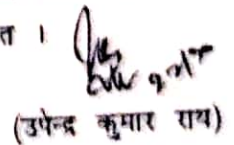 त ।
(उपेन्द्र कुमार राय)